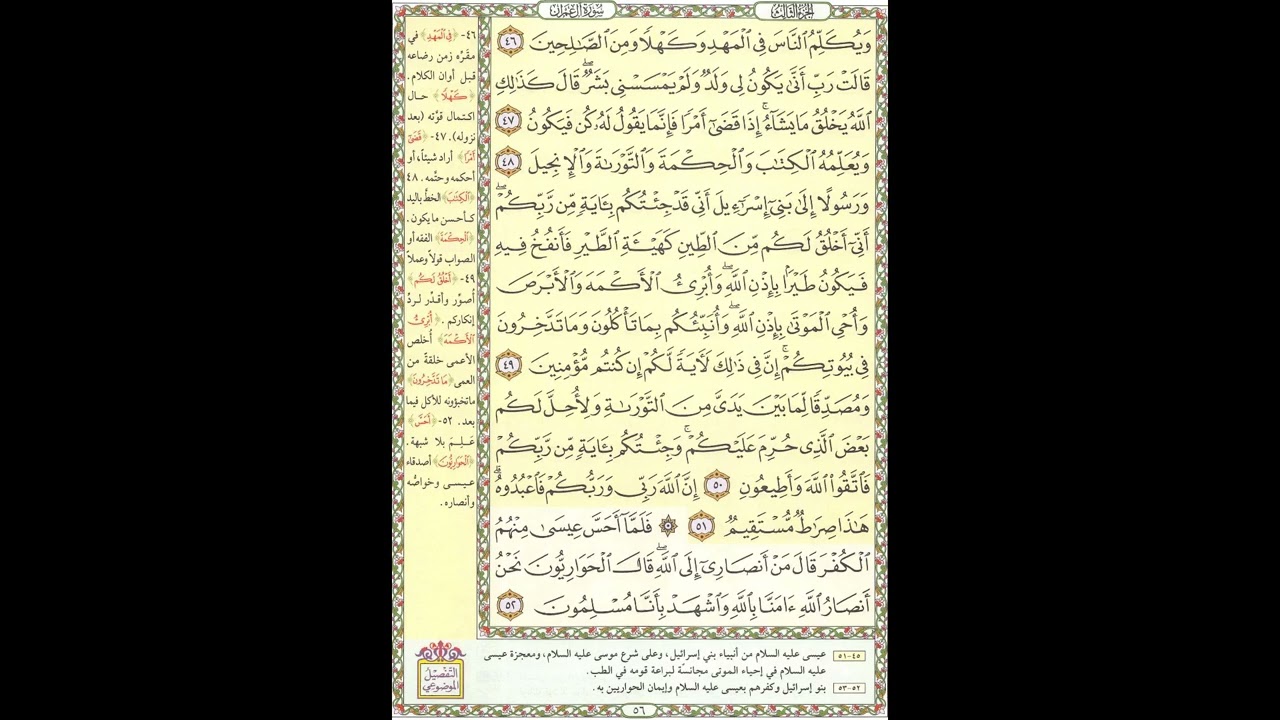 سورة آل عمران
الجزء الثالث
وَيُكَلِّمُ ٱلنَّاسَ فِى ٱلْمَهْدِ وَكَهْلًا وَمِنَ ٱلصَّٰلِحِينَ ٤٦
قَالَتْ رَبِّ أَنَّىٰ يَكُونُ لِى وَلَدٌ وَلَمْ يَمْسَسْنِى بَشَرٌ ۖ قَالَ كَذَٰلِكِ
ٱللَّهُ يَخْلُقُ مَا يَشَآءُ ۚ إِذَا قَضَىٰٓ أَمْرًا فَإِنَّمَا يَقُولُ لَهُۥ كُن فَيَكُونُ ٤٧
وَيُعَلِّمُهُ ٱلْكِتَٰبَ وَٱلْحِكْمَةَ وَٱلتَّوْرَىٰةَ وَٱلْإِنجِيلَ ٤٨
وَرَسُولًا إِلَىٰ بَنِىٓ إِسْرَٰٓءِيلَ أَنِّى قَدْ جِئْتُكُم بِـَٔايَةٍ مِّن رَّبِّكُمْ ۖ
أَنِّىٓ أَخْلُقُ لَكُم مِّنَ ٱلطِّينِ كَهَيْـَٔةِ ٱلطَّيْرِ فَأَنفُخُ فِيهِ
فَيَكُونُ طَيْرًۢا بِإِذْنِ ٱللَّهِ ۖ وَأُبْرِئُ ٱلْأَكْمَهَ وَٱلْأَبْرَصَ
وَأُحْىِ ٱلْمَوْتَىٰ بِإِذْنِ ٱللَّهِ ۖ وَأُنَبِّئُكُم بِمَا تَأْكُلُونَ وَمَا تَدَّخِرُونَ
فِى بُيُوتِكُمْ ۚ إِنَّ فِى ذَٰلِكَ لَـَٔايَةً لَّكُمْ إِن كُنتُم مُّؤْمِنِينَ ٤٩
وَمُصَدِّقًا لِّمَا بَيْنَ يَدَىَّ مِنَ ٱلتَّوْرَىٰةِ وَلِأُحِلَّ لَكُم
بَعْضَ ٱلَّذِى حُرِّمَ عَلَيْكُمْ ۚ وَجِئْتُكُم بِـَٔايَةٍ مِّن رَّبِّكُمْ
فَٱتَّقُوا۟ ٱللَّهَ وَأَطِيعُونِ ٥٠ إِنَّ ٱللَّهَ رَبِّى وَرَبُّكُمْ فَٱعْبُدُوهُ ۗ
هَٰذَا صِرَٰطٌ مُّسْتَقِيمٌ ٥١ ۞ فَلَمَّآ أَحَسَّ عِيسَىٰ مِنْهُمُ
ٱلْكُفْرَ قَالَ مَنْ أَنصَارِىٓ إِلَى ٱللَّهِ ۖ قَالَ ٱلْحَوَارِيُّونَ نَحْنُ
أَنصَارُ ٱللَّهِ ءَامَنَّا بِٱللَّهِ وَٱشْهَدْ بِأَنَّا مُسْلِمُونَ ٥٢
٤٦- ﴿فِى ٱلْمَهْدِ﴾ في
مقرّه زمن رضاعه
قبل أوان الكلام .
﴿كَهْلًا﴾ حال
اكتمال قوّته (بعد
نزوله). ٤٧- ﴿قَضَىٰٓ
أَمْرًا﴾ أراد شيئاً، أو
أحكمه وحتّمه . ٤٨
﴿ٱلْكِتَٰبَ﴾ الخطَّ باليد
كأحسن ما يكون .
﴿ٱلْحِكْمَةَ﴾ الفقه أو
الصواب قولاً وعملاً
٤٩- ﴿أَخْلُقُ لَكُم﴾
أصوّر وأقدّر لردّ
إنكاركم . ﴿أُبْرِئُ
ٱلْأَكْمَهَ﴾ أُخلص
الأعمى خلقةً من
العمى ﴿مَا تَدَّخِرُونَ﴾
ماتخبؤونه للأكل فيما
بعد . ٥٢- ﴿أَحَسَّ﴾
عَلِمَ بلا شبهة .
﴿ٱلْحَوَارِيُّونَ﴾ أصدقاء
عيسى وخواصُّه
وأنصاره .
التفصيل
الموضوعي
٤٥-٥١ عيسى عليه السلام من أنبياء بني إسرائيل، وعلى شرع موسى عليه السلام، ومعجزة عيسى
عليه السلام في إحياء الموتى مجانسة لبراعة قومه في الطب .
٥٢-٥٣ بنو إسرائيل وكفرهم بعيسى عليه السلام وإيمان الحواريين به .
٥٦